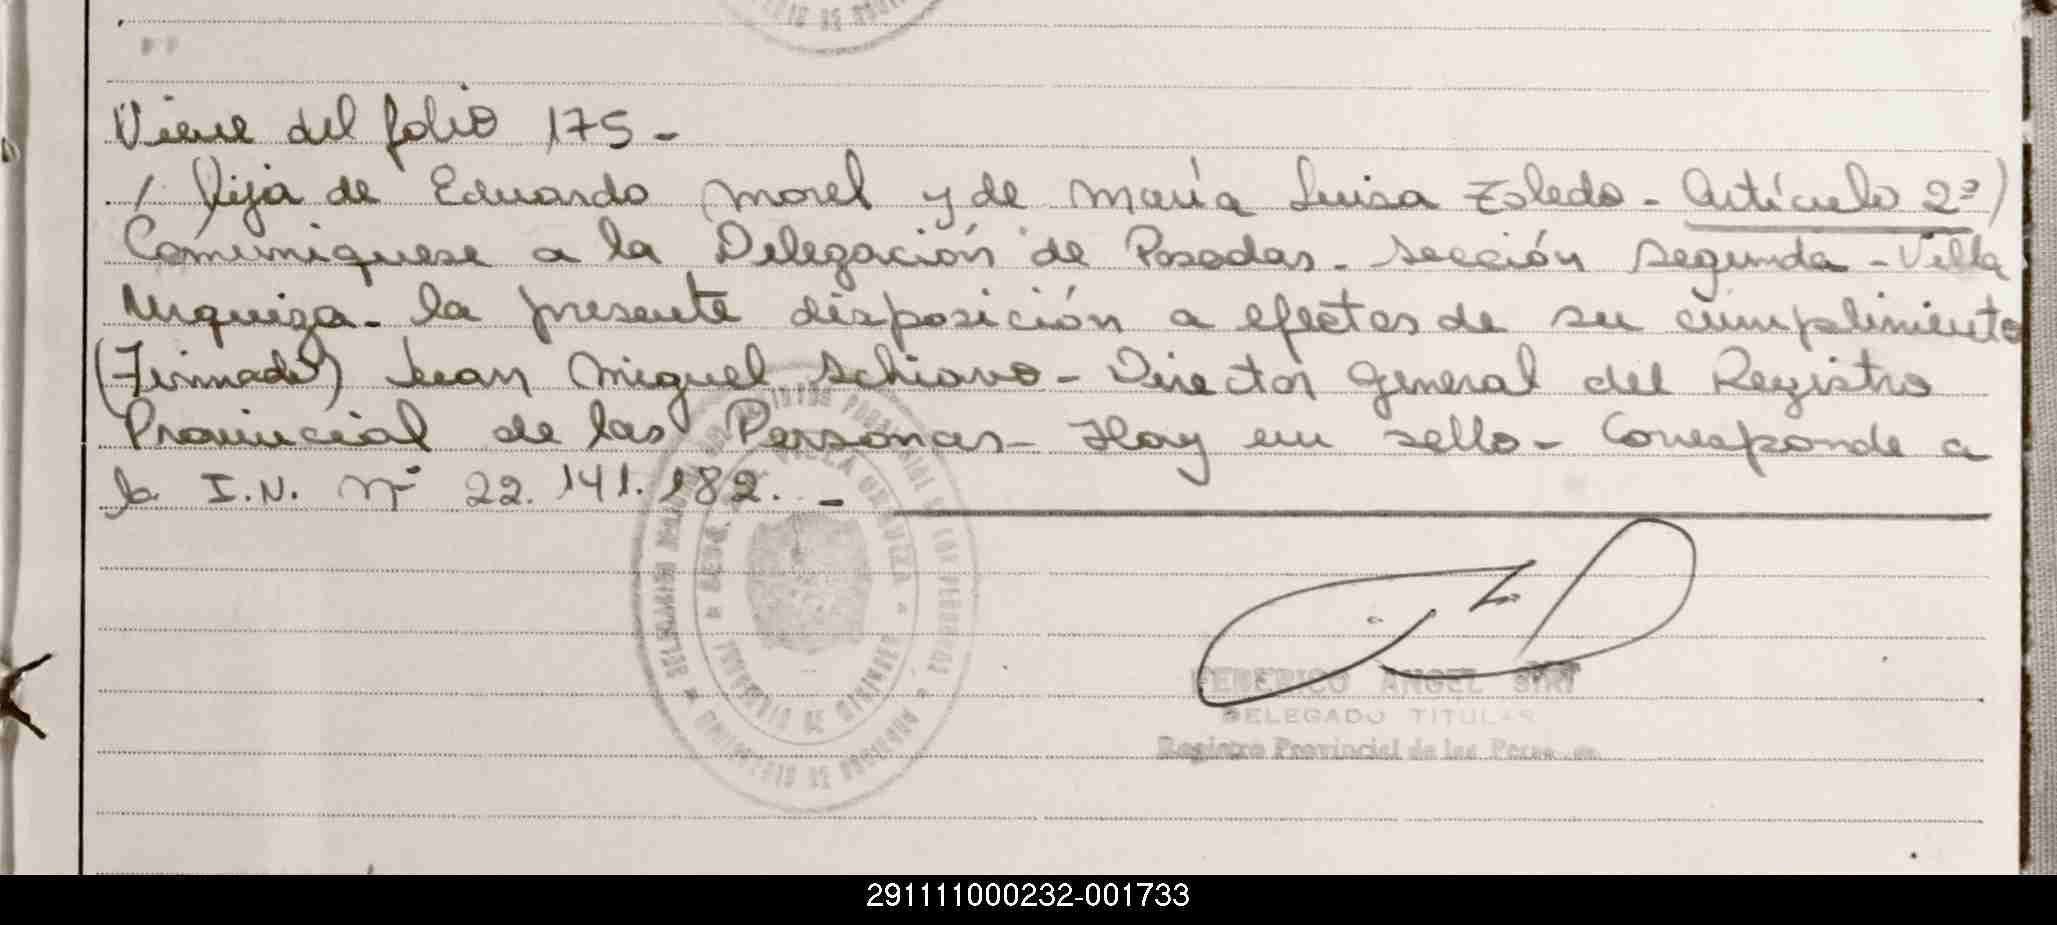 Viene del folio 175-
/ hija de Eduardo Morel y de María Luisa Toledo- Artículo 2º)
Comuníquese a la Delegación de Posadas- Sección Segunda- Villa
Urquiza- la presente disposición a efectos de su cumplimiento
(Firmado) Juan Miguel Schiavo- Director General del Registro
Provincial de las Personas- Hay un sello- Corresponde a
la I.N. Nº 22.141.182.-
FEDERICO ANGEL SIRI
DELEGADO TITULAR
Registro Provincial de las Personas
291111000232-001733